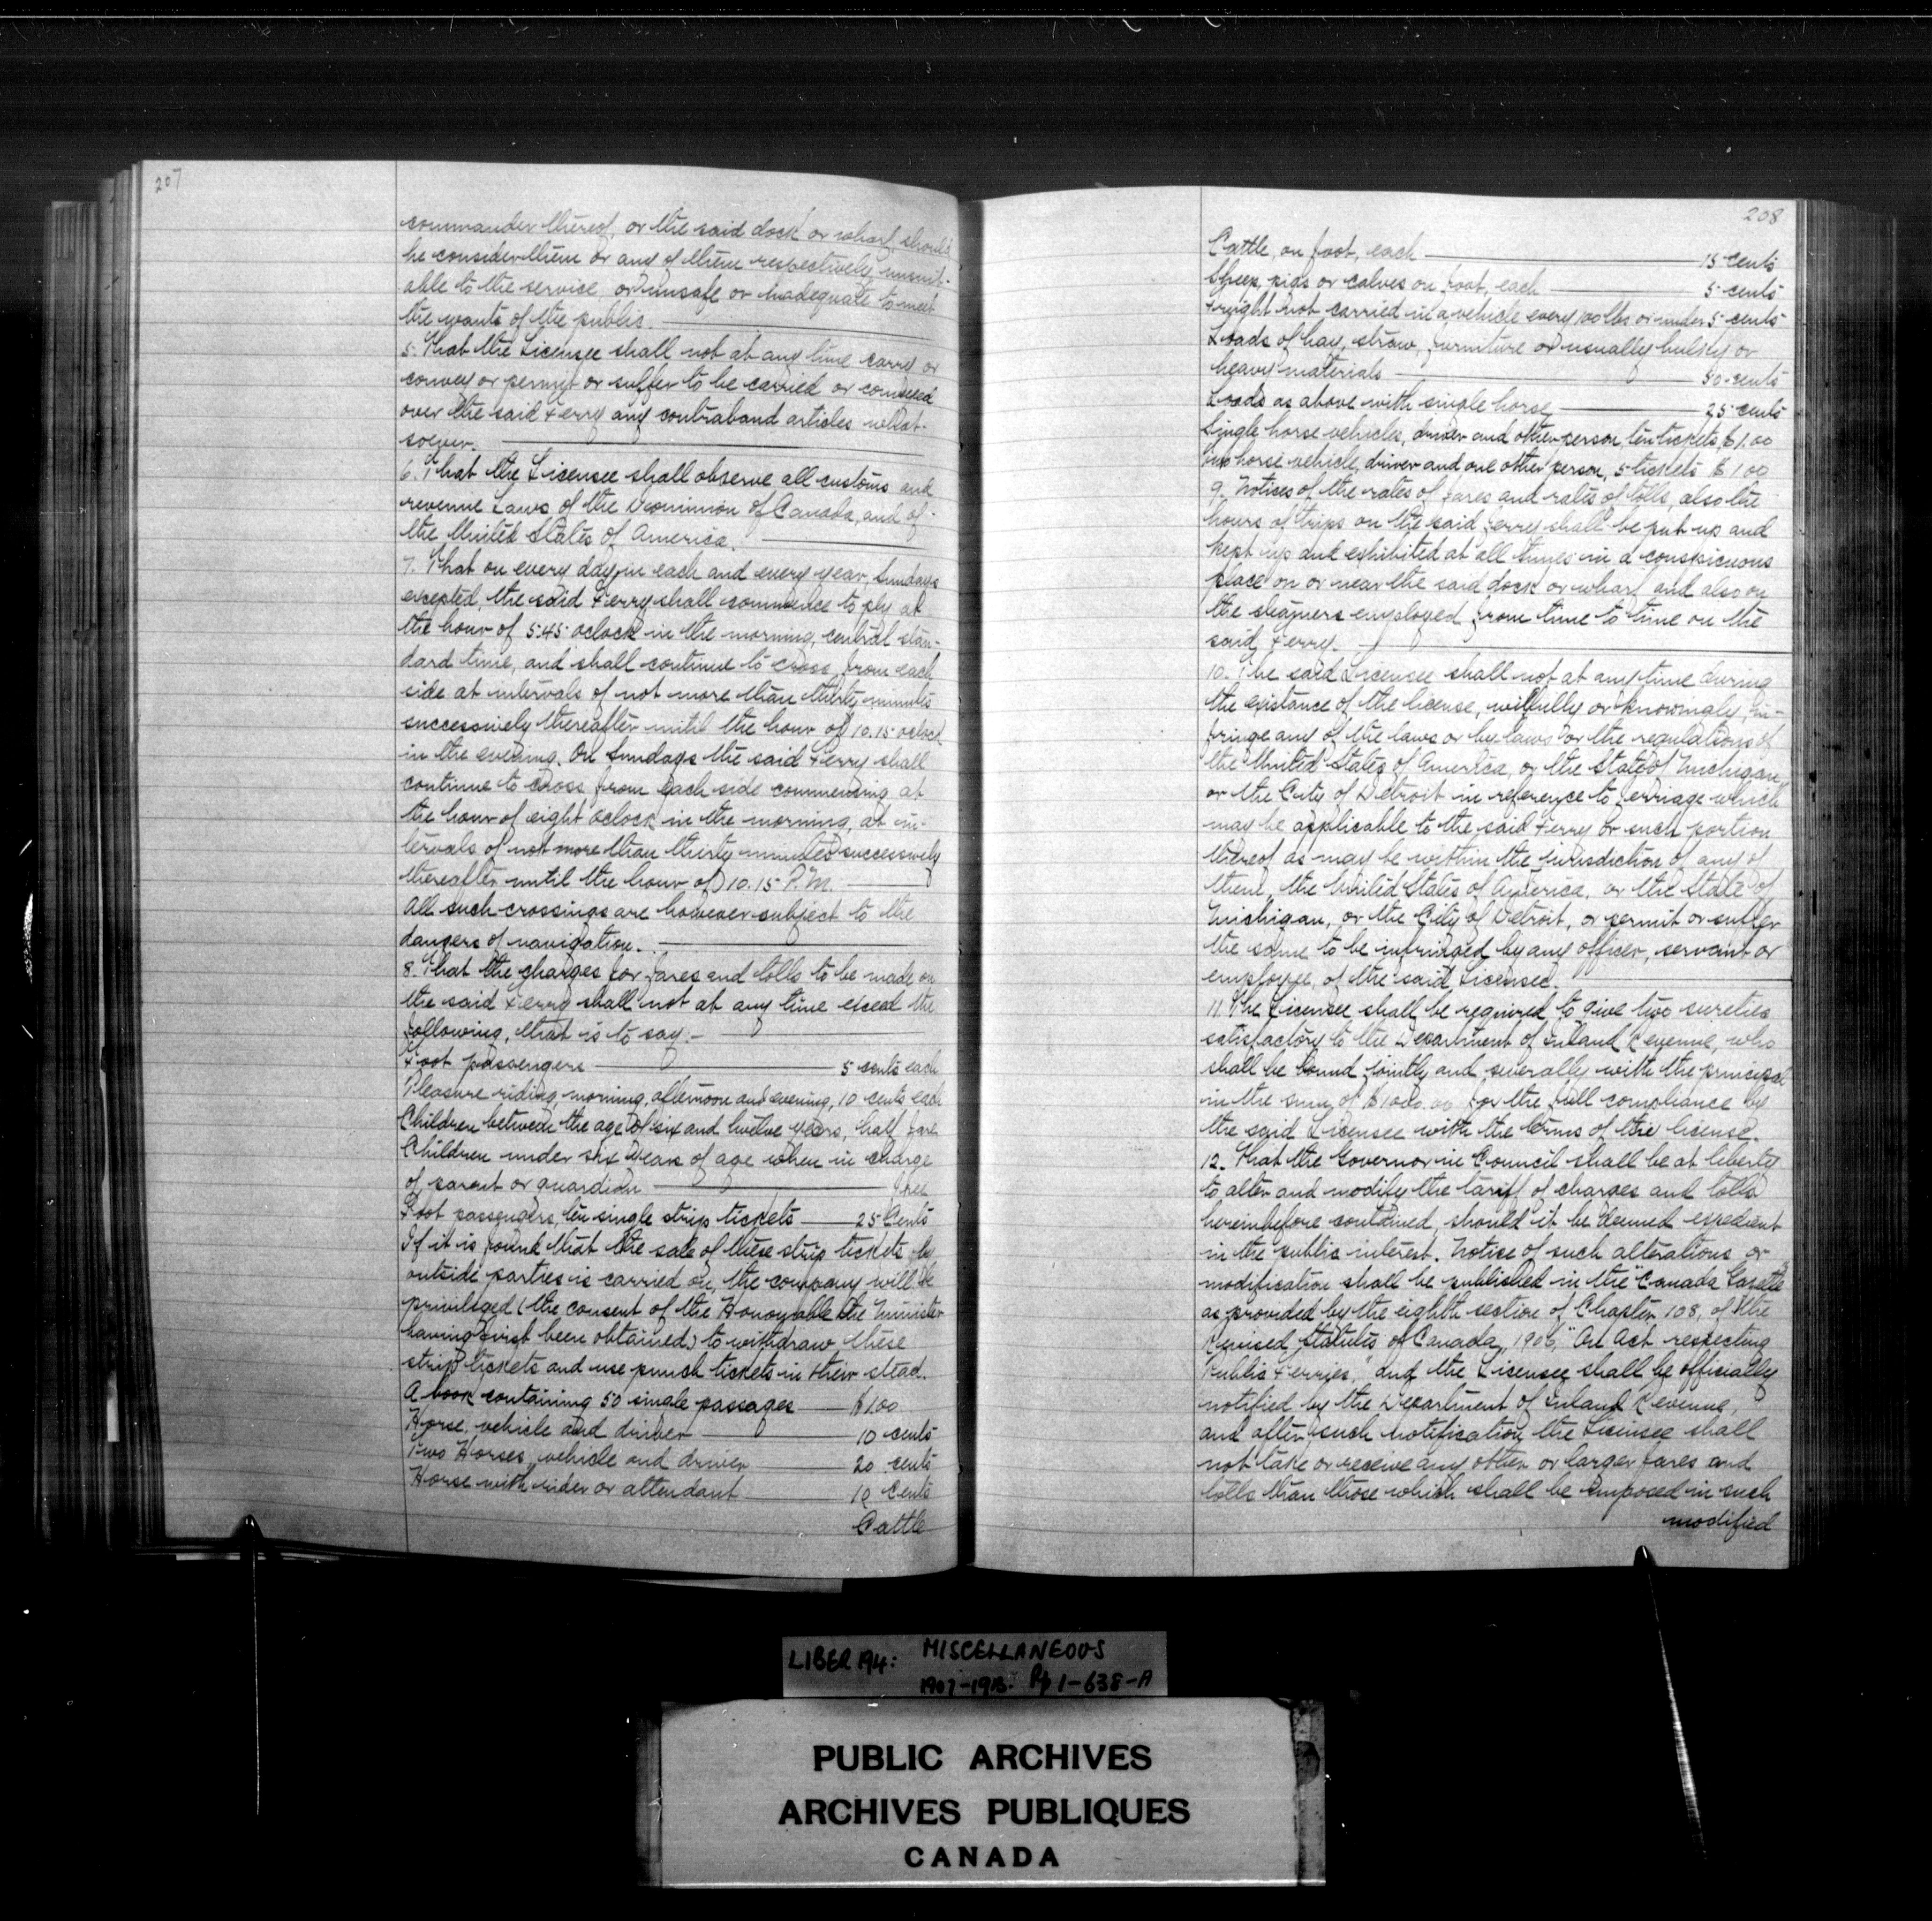 207
commander thereof, or the said dock or wharf should
he consider them or any of them respectively unsuit-
able to the service or unsafe or inadequate to meet
the wants of the public.
5. That the Licensee shall not at any time carry or
convey or permit or suffer to be carried or conveyed
over the said Ferry any contraband articles what-
soever.
6. That the Licensee shall observe all customs and
revenue Laws of the Dominion of Canada, and of
the United States of America.
7. That on every day in each and every year, Sundays
excepted, the said Ferry shall commence to ply at
the hour of 5:45 oclock in the morning, central stan-
dard time, and shall continue to cross from each
side at intervals of not more than thirty minutes
successively thereafter until the hour of 10.15 oclock
in the evening. On Sundays the said Ferry shall
continue to cross from each side commencing at
the hour of eight oclock in the morning, at in-
tervals of not more than thirty minutes successively
thereafter until the hour of 10.15 P.M.
All such crossings are however subject to the
dangers of navigation.
8. That the charges for fares and tolls to be made on
the said Ferry shall not at any time exceed the
following, that is to say:-
Foot passengers 5 cents each
Pleasure riding, morning, afternoon and evening, 10 cents each
Children between the age of six and twelve years, half fare
Children under six years of age when in charge
of parent or guardian free
Foot passengers, ten single strip tickets 25 Cents
If it is found that the sale of these strip tickets by
outside parties is carried on, the company will be
privileged (the consent of the Honorable the Minister
having first been obtained) to withdraw these
strip tickets and use punch tickets in their stead.
A book containing 50 single passages $1.00
Horse, vehicle and driver 10 cents
Two Horses, vehicle and driver 20 cents
Horse with rider or attendant 10 Cents
Cattle
208
Cattle, on foot, each 15 cents
Sheep, pigs or calves on foot, each 5 cents
Freight not carried in a vehicle every 100 lbs or under 5 cents
Loads of hay, straw, furniture or usually bulky or
heavy materials 50 cents
Loads as above with single horse 25 cents
Single horse vehicles, driver and other person, ten tickets $1.00
Two horse vehicle, driver and one other person, 5 tickets $1.00
9. Notices of the rates of fares and rates of tolls, also the
hours of trips on the said ferry shall be put up and
kept up and exhibited at all times in a conspicuous
place on or near the said dock or wharf and also on
the steamers employed from time to time on the
said Ferry.
10. The said Licensee shall not at any time during
the existance of the license, wilfully or knowingly, in-
fringe any of the laws or by laws or the regulations of
the United States of America, or the State of Michigan,
or the City of Detroit in reference to ferriage which
may be applicable to the said Ferry or such portion
thereof as may be within the jurisdiction of any of
them, the United States of America, or the State of
Michigan, or the City of Detroit, or permit or suffer
the same to be infringed by any officer, servant or
employee, of the said Licensee.
11. The Licensee shall be required to give two sureties
satisfactory to the Department of Inland Revenue, who
shall be bound jointly and severally with the principal
in the sum of $1000.00 for the full compliance by
the said Licensee with the terms of the license.
12. That the Governor in Council shall be at liberty
to alter and modify the tariff of charges and tolls
hereinbefore contained, should it be deemed expedient
in the public interest. Notice of such alterations or
modification shall be published in the "Canada Gazette"
as provided by the eighth section of Chapter 108, of the
Revised Statutes of Canada, 1906, "An Act respecting
Public Ferries," and the Licensee shall be officially
notified by the Department of Inland Revenue,
and after such notification the Licensee shall
not take or receive any other or larger fares and
tolls than those which shall be imposed in such
modified
LIBER 194: MISCELLANEOUS
1907-1913. Pp 1-638-A
PUBLIC ARCHIVES
ARCHIVES PUBLIQUES
CANADA